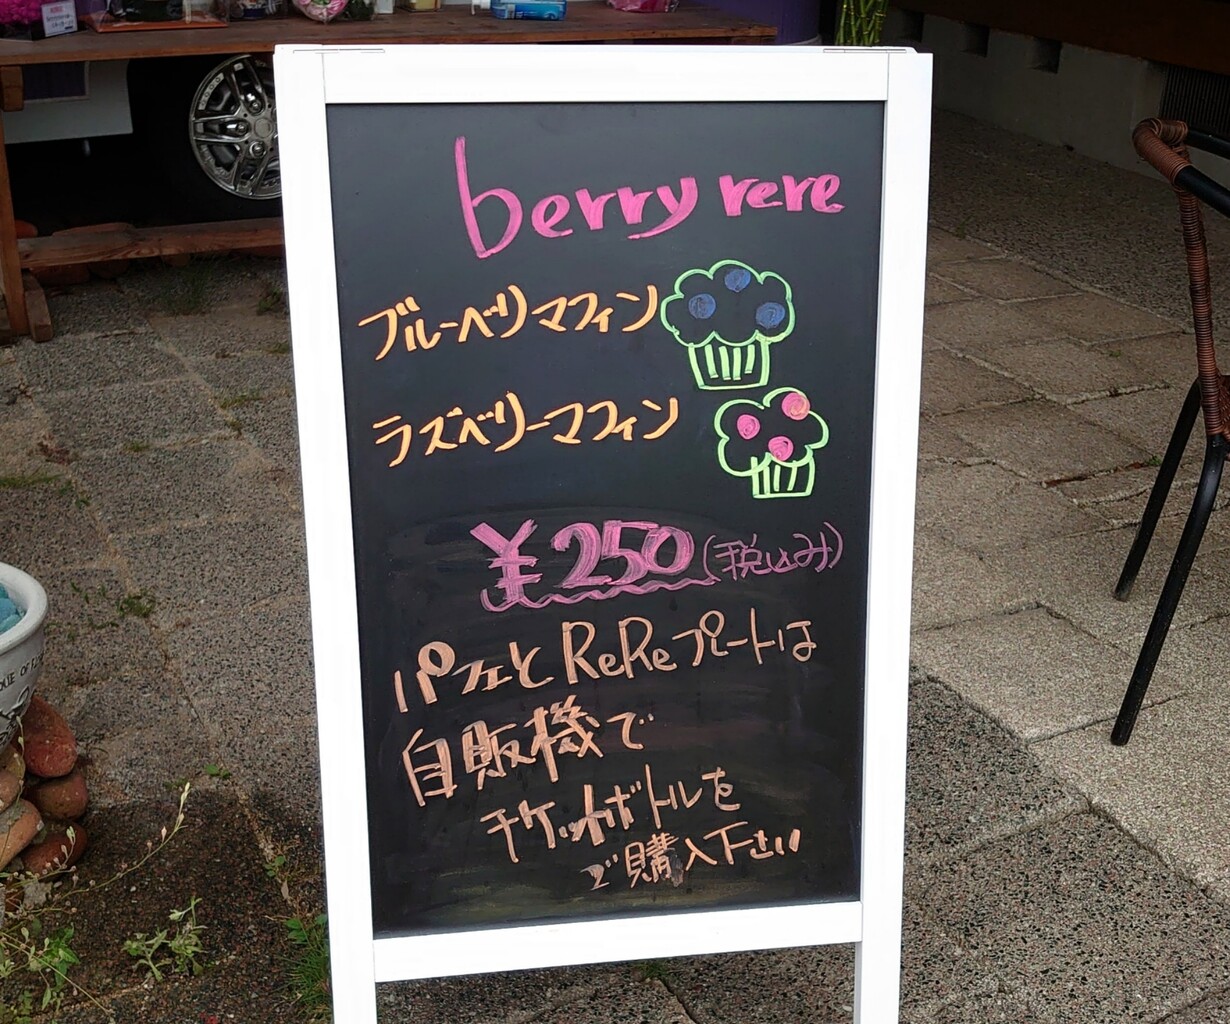 berry rere
ブルーベリマフィン
ラズベリーマフィン
¥250(税込み)
パフェとReReプレートは
自販機で
チケットボトルを
ご購入下さい